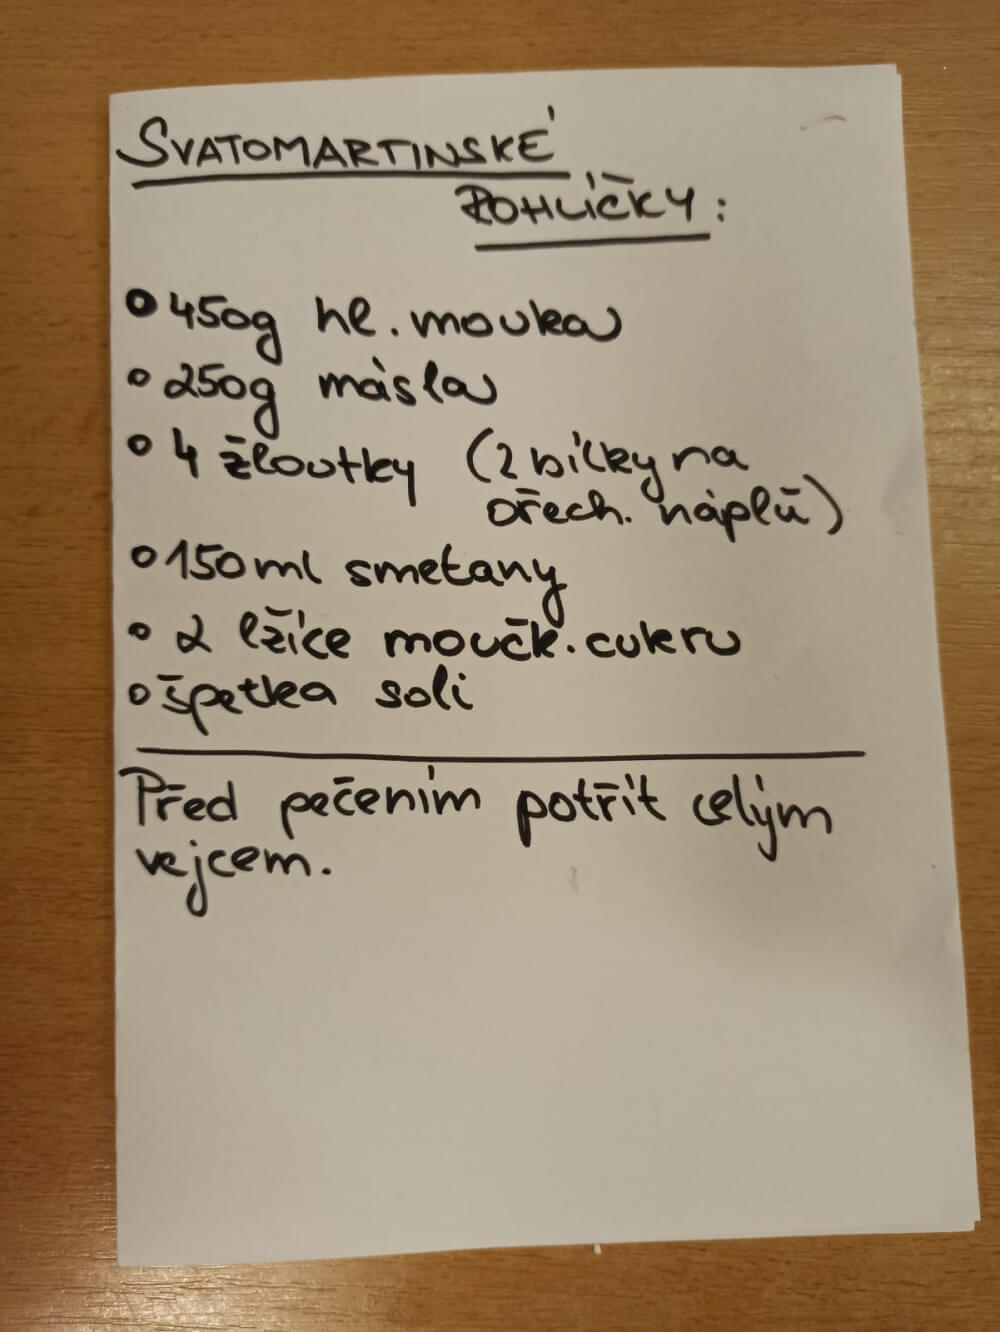 SVATOMARTINSKÉ
ROHLÍČKY:
• 450g hl. mouka
• 250g másla
• 4 žloutky (2 bílky na
ořech. náplň)
• 150ml smetany
• 2 lžíce moučk. cukru
• špetka soli
Před pečením potřít celým
vejcem.